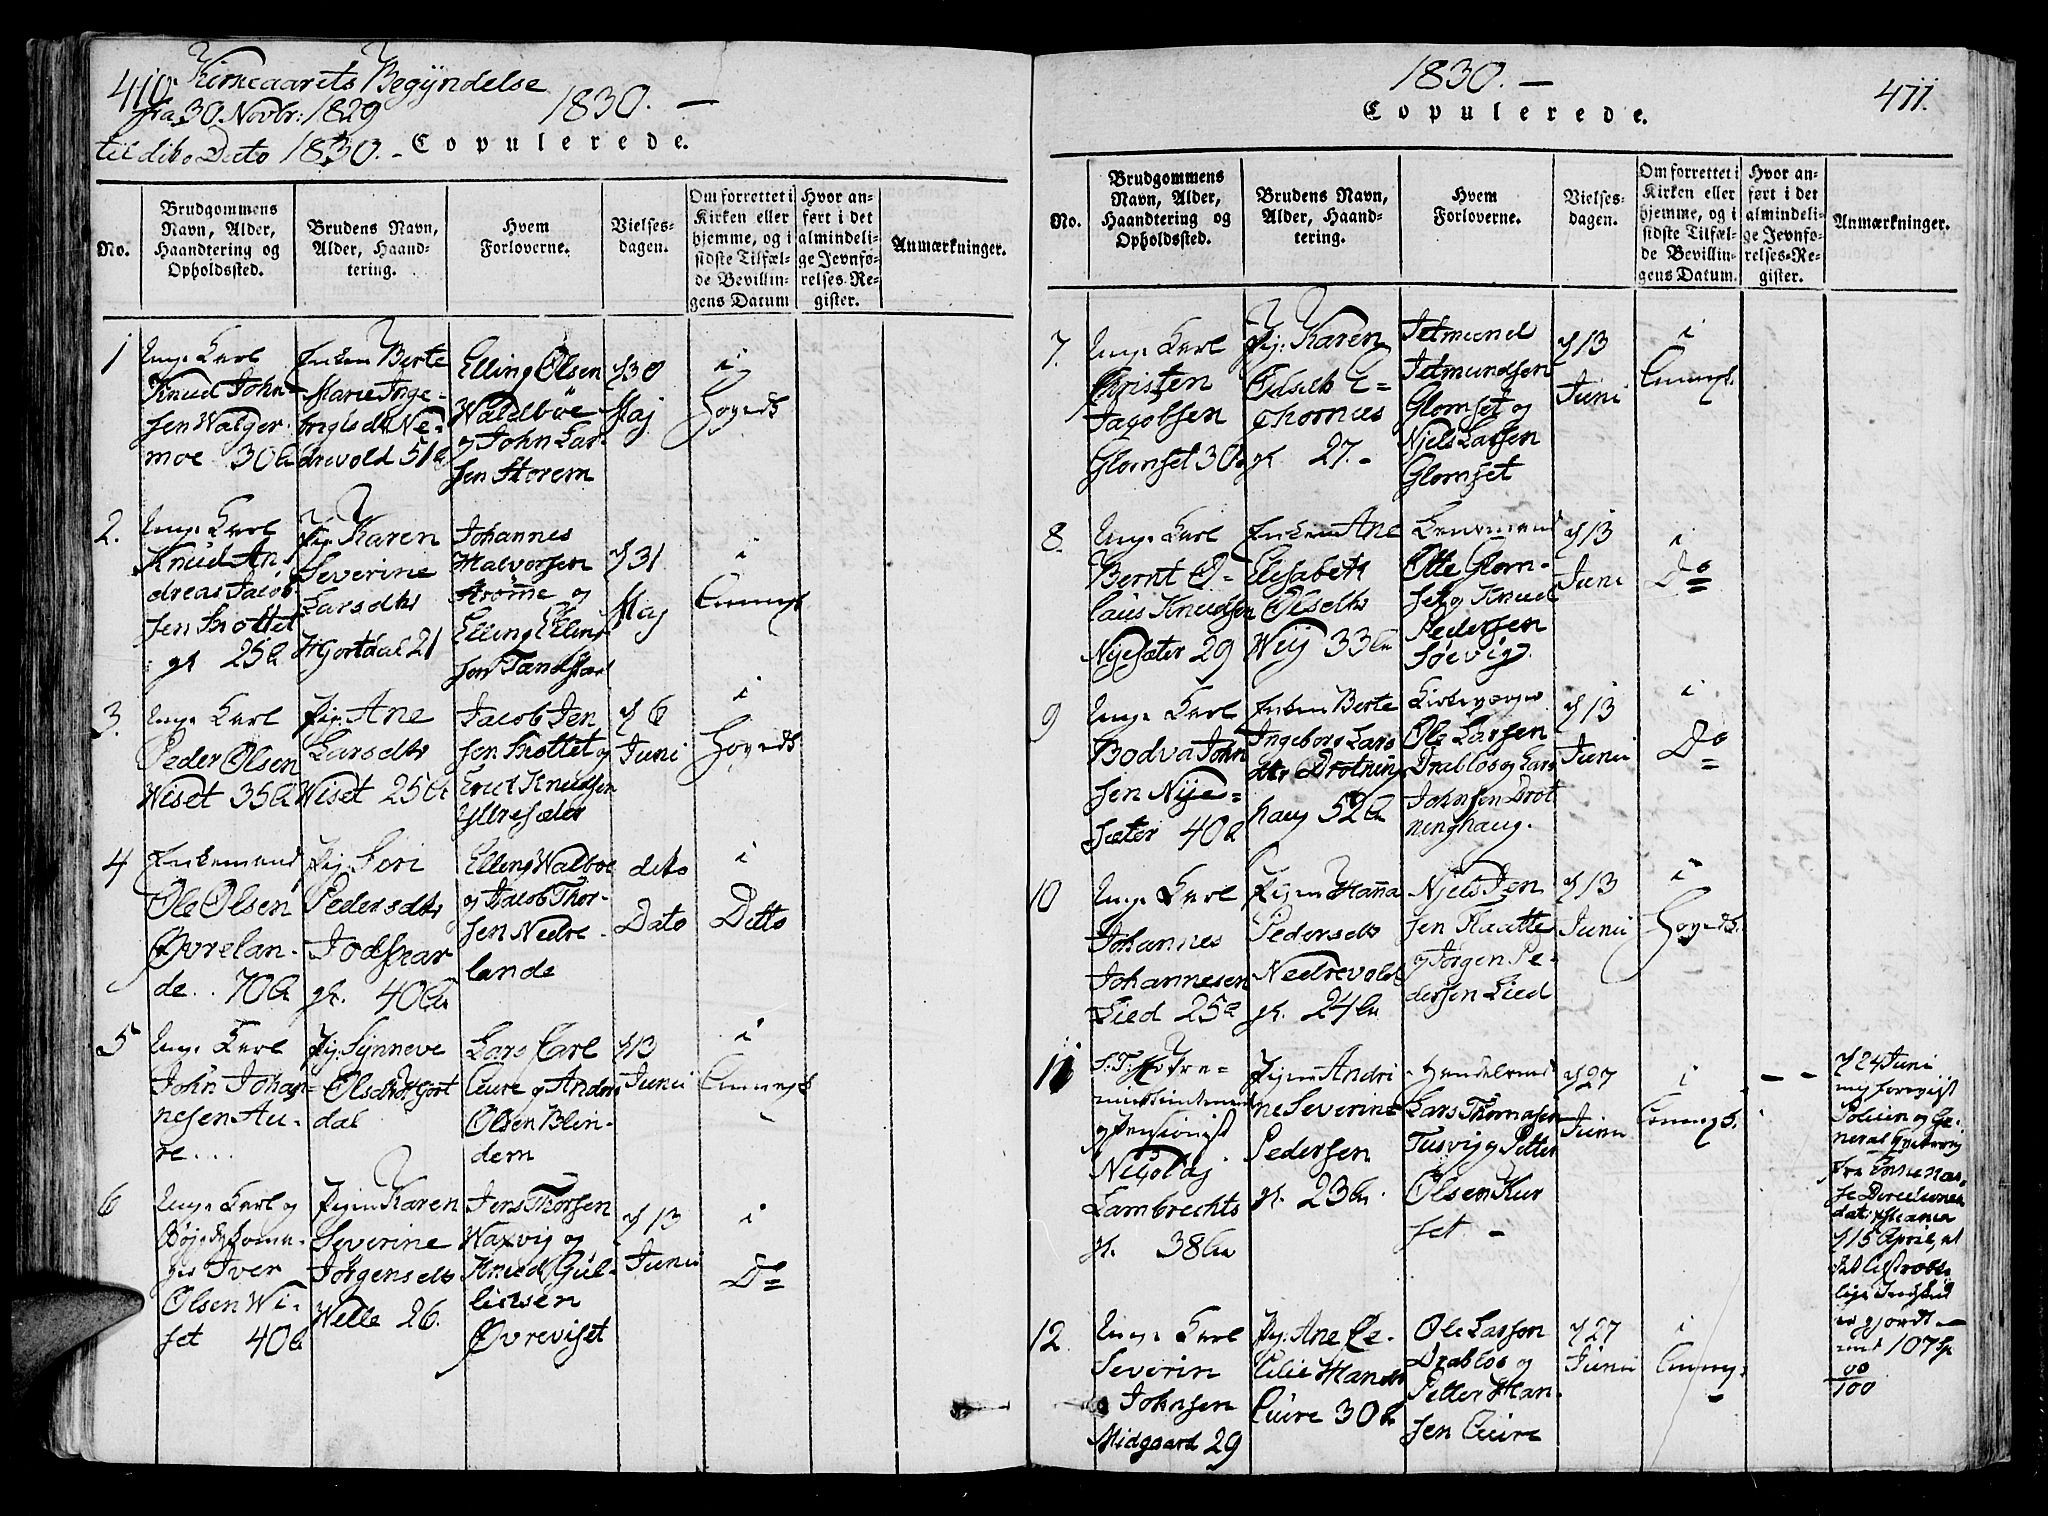 410. Kirkeaarets Begÿndelse
fra 30 Novbr: 1829 1830. —
til dito Dato 1830. -
Copulerede.
No.
Brudgommens
Navn, Alder,
Haandtering og
Opholdssted.
Brudens Navn,
Alder, Haand-
tering.
Hvem
Forloverne.
Vielses-
dagen.
Om forrettet i
Kirken eller
hjemme, og i
sidste Tilfæl-
de Bevillin-
gens Datum
Hvor an-
ført i det
almindeli-
ge Jevnfø-
relses-Re-
gister.
Anmærkninger.
1
Unge Karl
Knud John-
sen Walger-
moe 30 a
Enken Berte
Marie Inge-
brigtsdtr Ne-
drevold 51 a
Elling Olsen
Waldbøe
og John Lar-
sen Storem
30
Maj
i
Hoveds
2.
Unge Karl
Knud An-
dreas Jacob
sen Skottet
25 a
Pig. Karen
Severine
Larsdtr
Hjortdal 21
Johannes
Halvorsen
Strømme og
Elling Elling
sen Tandstad
31
Maj
i
Annext
3.
Unge Karl
Peder Olsen
Wiset 35 a
Pig. Ane
Larsdtr
Wiset 25 a
Jacob Jen
sen Skottet og
Erick Knudsen
Yttresæter
6
Juni
i
Hoveds
4
Enkemand
Ole Olsen
Øvrelan-
de.. 70 a
Pig. Seri
Pedersdtr
Jodskar
gl. 40 a
Elling Walboe
og Jacob Thor-
sen Nedre-
lande
dito
Dato
i
Ditto
5
Unge Karl
John Johan-
nesen Au-
re....
Pig. Synneve
Olsdtr Hjort
dal
Lars Carl
Aure og Anders
Olsen Blin-
dem
13
Junii
i
Annext
6
Unge Karl og
Iver
Olsen Wi-
set 40 a
Pigen Karen
Severine
Jørgensdtr
Welle 26.
Jens Thorsen
Waxvig og
Knud Gul-
licksen
Øvreviset
13
Junii
i
Do
1830. — 411.
Copulerede.
No.
Brudgommens
Navn, Alder,
Haandtering og
Opholdssted.
Brudens Navn,
Alder, Haand-
tering.
Hvem
Forloverne.
Vielses-
dagen.
Om forrettet i
Kirken eller
hjemme, og i
sidste Tilfæl-
de Bevillin-
gens Datum.
Hvor an-
ført i det
almindeli-
ge Jevnfø-
relses-Re-
gister.
Anmærkninger.
7.
Unge Karl
Christen
Jacobsen
Glomset 30
Pig. Karen
Thornes
gl. 27. -
Jetmund
Jetmundsen
Glomset og
Niels Larsen
Glomset
13
Juni
i
Annext.
8.
Unge Karl
Bernt O-
laus Knudsen
Nysæter 29
Enken Ane
Elisabeth
Olsdtr
Weij 33
Lensmand
Otte Glom-
set og Knud
Pedersen
Søevig.
13
Juni
i
Do
9
Unge Karl
Bodva John
sen Nye-
sæter 40 a
Enken Berte
Ingeborg Lars
dtr Drotning
haug 52 a
Kirkeværger
Ole Larsen
Drabløs og Lars
Johnsen Drot
ninghaug.
13
Junii
i
Do
10
Unge Karl
Johannes
Johannesen
Lied 25 a
Pigen Hanna
Pedersdtr
Nedrevold
gl. 24
Niels Jen
sen Flaatte
og Jørgen Pe-
dersen Lied
13
Junii
i
Hoveds.
11
S. T.
og Pensionist
Nicolay
Lambrechts
gl. 38
Pigen Andri
ne Severine
Pedersen
gl. 23
Handelsmd
Lars Thomasen
Tusvig og Petter
Olsen Kur
set. -
27
Junii
i
Annext.
— -
24 Juni
mig forevist
15 April, at
er gjordt —
med 107 Sp
00
100
12.
Unge Karl
Severin
Johnsen
Midgaard 29
Pig. Ane Ce-
cilie Hansdtr
Aure 30
Ole Larsen
Drabløs og
Petter Han-
sen Aure
27
Junii
i
Annext
-